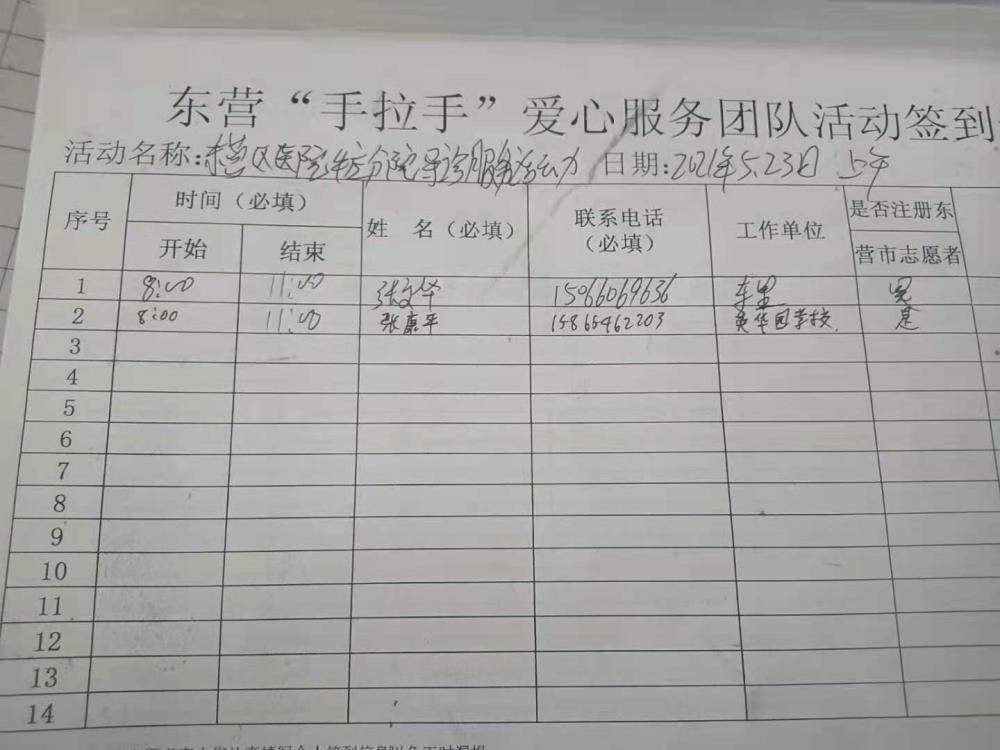 东营“手拉手”爱心服务团队活动签到
活动名称:东营区医院 分院导诊服务活动 日期:2021年5.23日 上午
序号 时间（必填） 姓 名（必填） 联系电话（必填） 工作单位 是否注册东营市志愿者
开始 结束
1 8:00 11:00 张文华 15066069636 是
2 8:00 11:00 张康平 15865462203 英华园学校 是
3
4
5
6
7
8
9
10
11
12
13
14